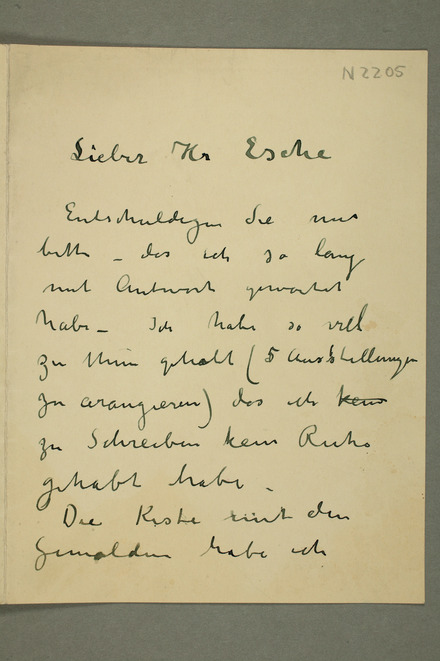 N2205
Lieber Hr Esche
Entschuldigen Sie mir
bitte - das ich so lang
mit Antwort gewartet
habe - Ich habe so viel
zu thun gehabt (5 Ausstellungen
zu arangieren) das ich kein
zu Schreiben kein Ruhe
gehabt habe -
Die Kiste mit den
Gemälden habe ich